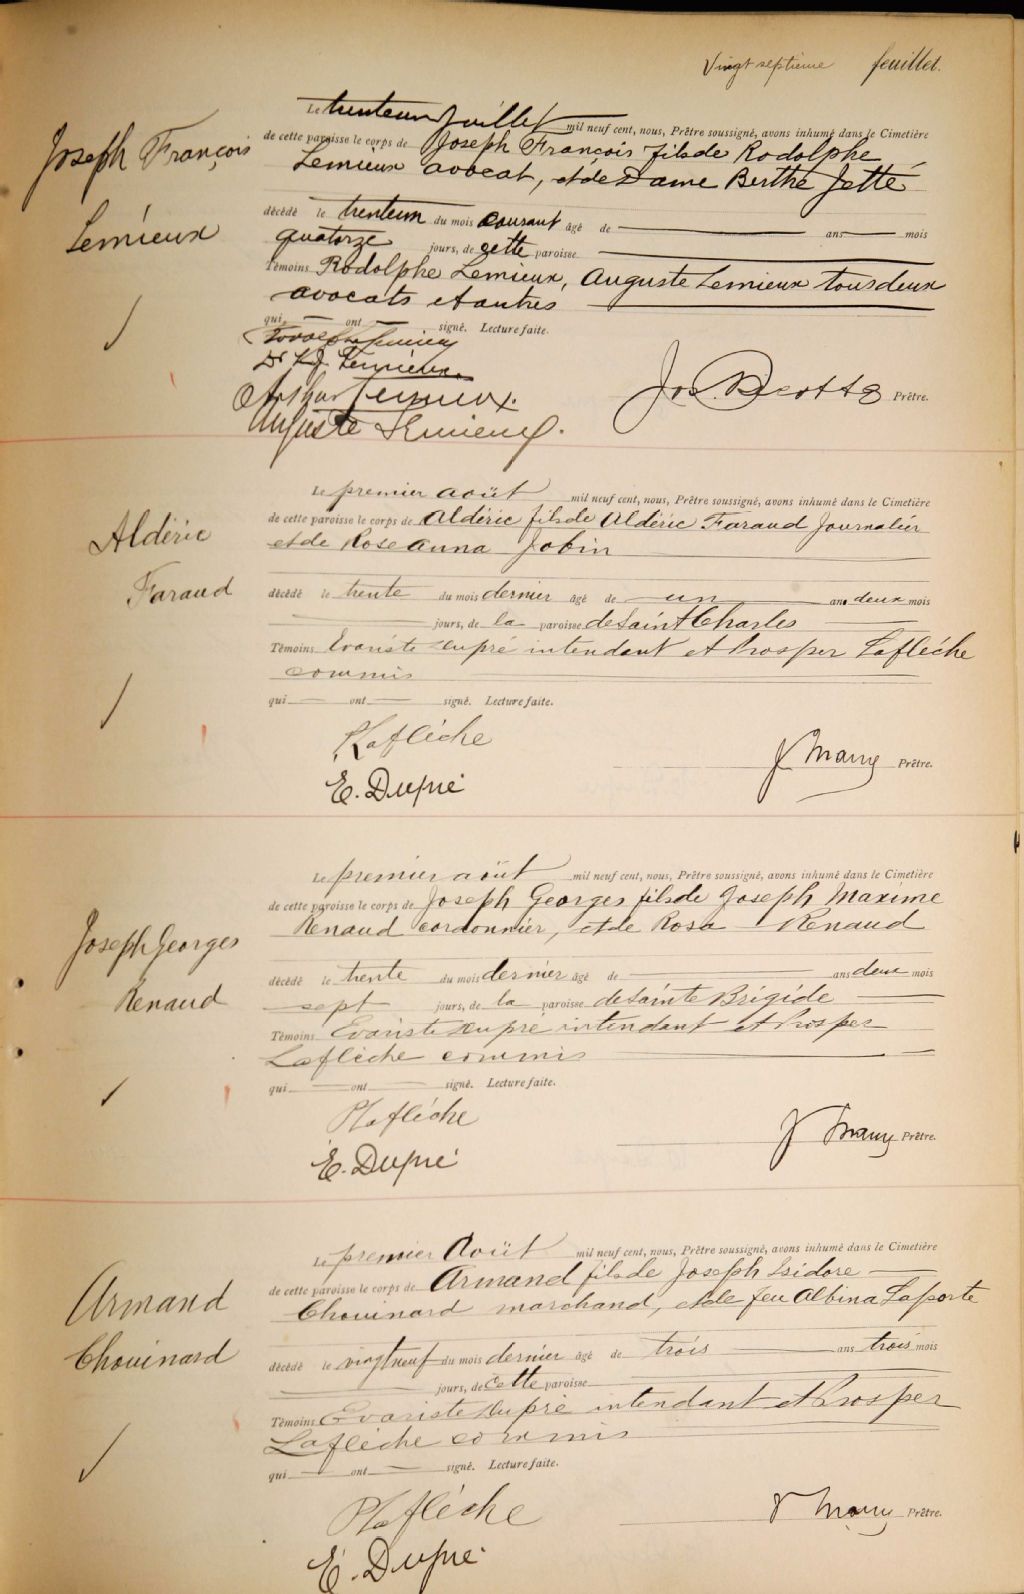 Vingt septième feuillet.
Joseph François
Lemieux
Le trenteun Juillet mil neuf cent, nous, Prêtre soussigné, avons inhumé dans le Cimetière
de cette paroisse le corps de Joseph François fils de Rodolphe
Lemieux avocat, et de Dame Berthe Jetté
décédé le trenteun du mois courant âgé de ans mois
quatorze jours, de cette paroisse
Témoins Rodolphe Lemieux, Auguste Lemieux tous deux
avocats et autres
qui ont signé. Lecture faite.
Lemieux
Lemieux
Arthur Lemieux.
Auguste Lemieux.
Jos. Prêtre.
Aldéric
Faraud
Le premier août mil neuf cent, nous, Prêtre soussigné, avons inhumé dans le Cimetière
de cette paroisse le corps de Aldéric fils de Aldéric Faraud Journalier
et de Rose anna Jobin
décédé le trente du mois dernier âgé de un an deux mois
jours, de la paroisse de Saint Charles
Témoins Evariste Dupré intendant et Prosper Laflèche
commis
qui ont signé. Lecture faite.
P Laflèche
E. Dupré
Prêtre.
Joseph Georges
Renaud
Le premier août mil neuf cent, nous, Prêtre soussigné, avons inhumé dans le Cimetière
de cette paroisse le corps de Joseph Georges fils de Joseph Maxime
Renaud cordonnier, et de Rosa Renaud
décédé le trente du mois dernier âgé de ans deux mois
sept jours, de la paroisse de Sainte Brigide
Témoins Evariste Dupré intendant et Prosper
Laflèche commis
qui ont signé. Lecture faite.
P Laflèche
E. Dupré
Prêtre.
Armand
Chouinard
Le premier Août mil neuf cent, nous, Prêtre soussigné, avons inhumé dans le Cimetière
de cette paroisse le corps de Armand fils de Joseph Isidore
Chouinard marchand, et de feu Albina Laporte
décédé le vingtneuf du mois dernier âgé de trois ans trois mois
jours, de cette paroisse
Témoins Evariste Dupré intendant et Prosper
Laflèche commis
qui ont signé. Lecture faite.
P Laflèche
E. Dupré
Prêtre.